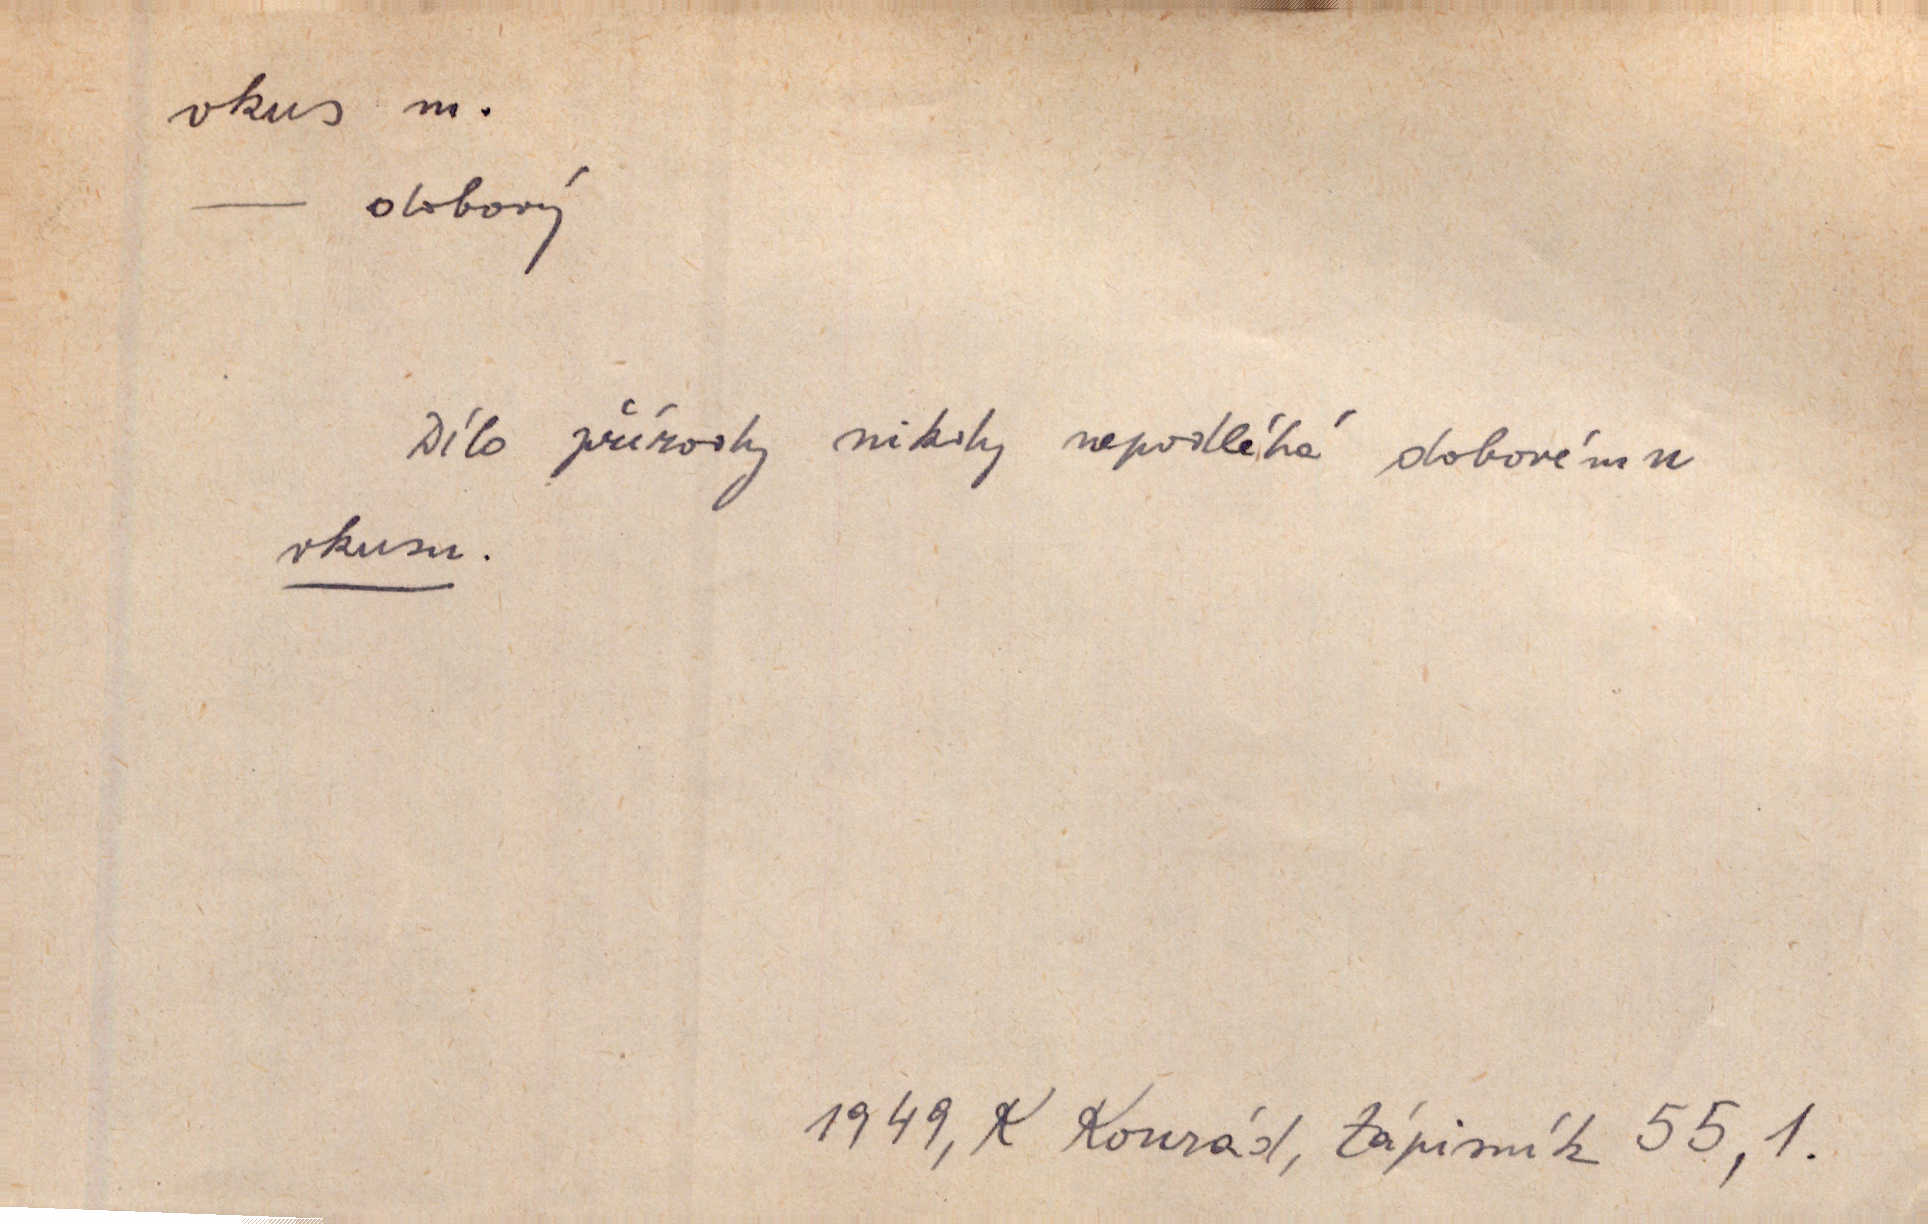 vkus m.
— dobový
Dílo přírody nikdy nepodléhá dobovému
vkusu.
1949, K Konrád, Zápisník 55, 1.